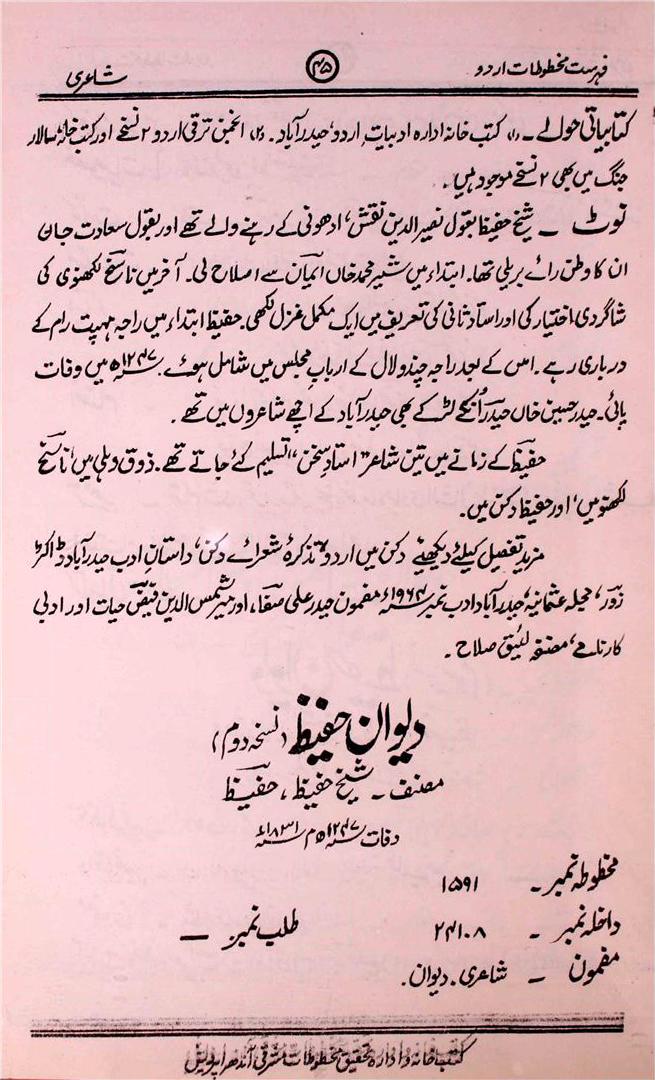 فہرست مخطوطات اردو ۴۵ شاعری
کتابیاتی حوالے ۔ (۱) کتب خانہ ادارہ ادبیات اردو، حیدرآباد ۔ (۲) انجمن ترقی اردو ۲ نسخے اور کتب خانہ سالار
جنگ میں بھی ۲ نسخے موجود ہیں ۔
نوٹ ۔ شیخ حفیظ بقول نصیر الدین نقش، ادھونی کے رہنے والے تھے اور بقول سعادت جان
ان کا وطن رائے بریلی تھا۔ ابتداء میں شیر محمد خاں ایمان سے اصلاح لی۔ آخر میں ناسخ لکھنوی کی
شاگردی اختیار کی اور استاد ثانی کی تعریف میں ایک مکمل غزل لکھی۔ حفیظ ابتداء میں راجہ مہپت رام کے
درباری رہے ۔ اس کے بعد راجہ چندولال کے ارباب مجلس میں شامل ہوئے ۔ ۱۲۴۷ھ میں وفات
پائی۔ حیدر حسین خاں حیدر انکے لڑکے بھی حیدرآباد کے اچھے شاعروں میں تھے ۔
حفیظ کے زمانے میں تین شاعر "استادِ سخن" تسلیم کئے جاتے تھے ۔ ذوق دہلی میں، ناسخ
لکھنو میں، اور حفیظ دکن میں۔
مزید تفصیل کیلئے دیکھئے دکن میں اردو، تذکرۂ شعرائے دکن، داستانِ ادب حیدرآباد ڈاکٹر
زور، مجلہ عثمانیہ، حیدرآباد ادب نمبر ۱۹۶۴ء مضمون حیدر علی صفا، اور میر شمس الدین فیض حیات اور ادبی
کارنامے، مصنفہ لئیق صلاح ۔
دیوان حفیظ (نسخہ دوم)
مصنف ۔ شیخ حفیظ ، حفیظ
وفات ۱۲۴۷ھ م ۱۸۳۱ء
مخطوطہ نمبر ۔ ۱۵۹۱
داخلہ نمبر ۔ ۲۴۱۰۸ طلب نمبر ۔
مضمون ۔ شاعری ۔ دیوان ۔
کتب خانہ و ادارہ تحقیق مخطوطات مشرقی آندھراپردیش